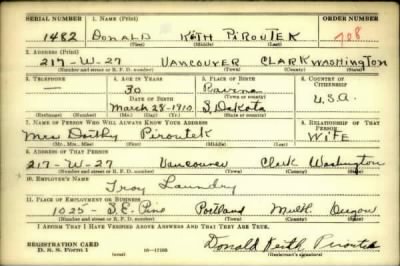 SERIAL NUMBER 1. NAME (Print) ORDER NUMBER
1482 DONALD KEITH PIROUTEK 708
(First) (Middle) (Last)
2. ADDRESS (Print)
217-W-27 VANCOUVER CLARK WASHINGTON
(Number and street or R. F. D. number) (Town) (County) (State)
3. TELEPHONE 4. AGE IN YEARS 5. PLACE OF BIRTH 6. COUNTRY OF CITIZENSHIP
— 30 Ravina
DATE OF BIRTH (Town or county)
March 28-1910 S. Dakota U.S.A.
(Exchange) (Number) (Mo.) (Day) (Yr.) (State or country)
7. NAME OF PERSON WHO WILL ALWAYS KNOW YOUR ADDRESS 8. RELATIONSHIP OF THAT PERSON
Mrs Dorthy Piroutek WIFE
(Mr., Mrs., Miss) (First) (Middle) (Last)
9. ADDRESS OF THAT PERSON
217-W-27 Vancouver Clark Washington
(Number and street or R. F. D. number) (Town) (County) (State)
10. EMPLOYER'S NAME
Troy Laundry
11. PLACE OF EMPLOYMENT OR BUSINESS
1025- S.E. Pine Portland Mult. Oregon
(Number and street or R. F. D. number) (Town) (County) (State)
I AFFIRM THAT I HAVE VERIFIED ABOVE ANSWERS AND THAT THEY ARE TRUE.
REGISTRATION CARD
D. S. S. Form 1 Donald Keith Piroutek
(Registrant's signature)